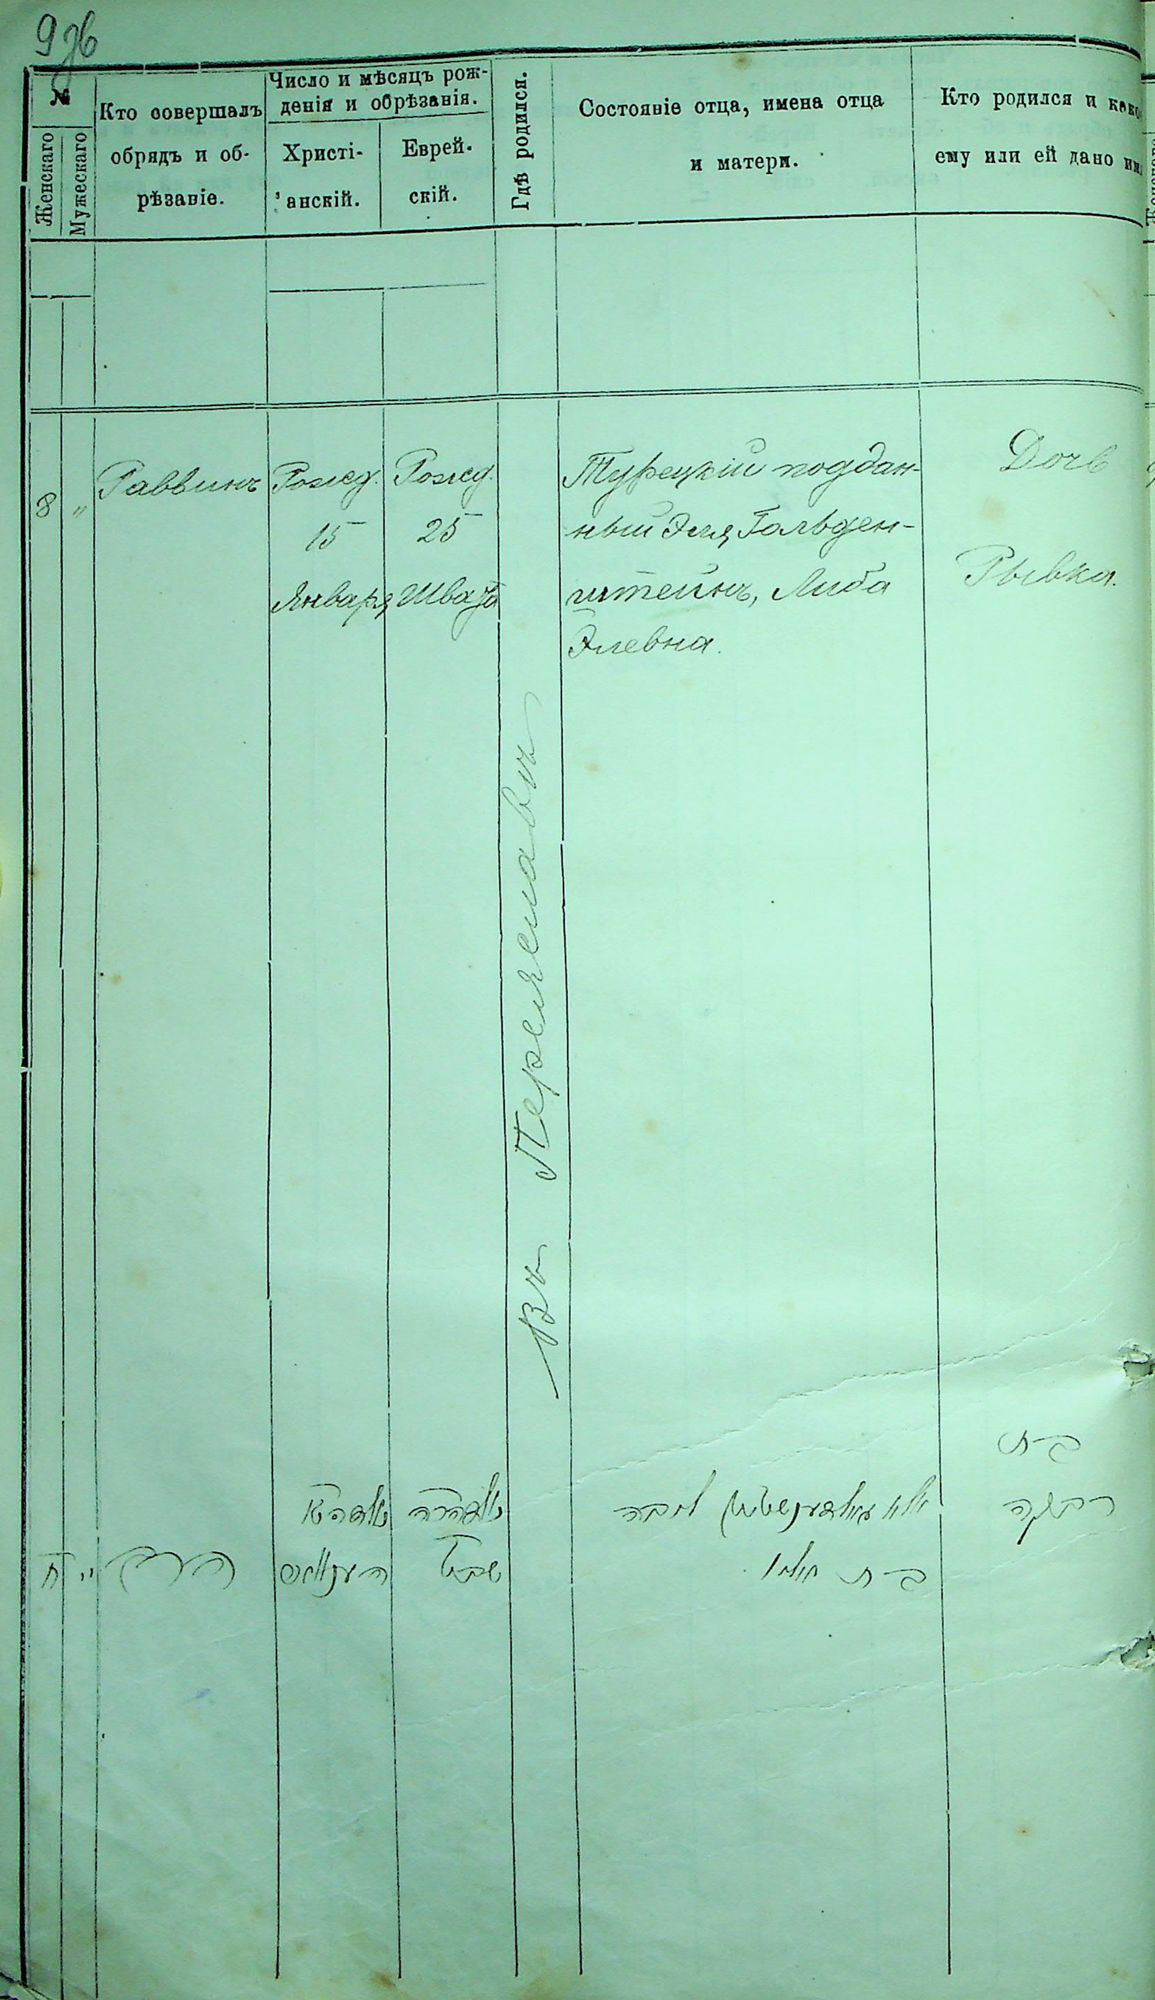 №
Женскаго
Мужескаго
Кто совершалъ
обрядъ и об-
рѣзаніе.
Число и мѣсяцъ рож-
денія и обрѣзанія.
Христі-
анскій.
Еврей-
скій.
Гдѣ родился.
Состояніе отца, имена отца
и матери.
Кто родился и како
ему или ей дано им
8
"
Раввинъ
Рожд.
15
Января
Рожд.
25
Швата
Въ Переяславѣ
Турецкій поддан-
ный Эля Гольден-
штейнъ, Либа
Элевна.
Дочь
Рывка.
בת
רבקה
ליבה
בת
שבט
הרב
"
ח